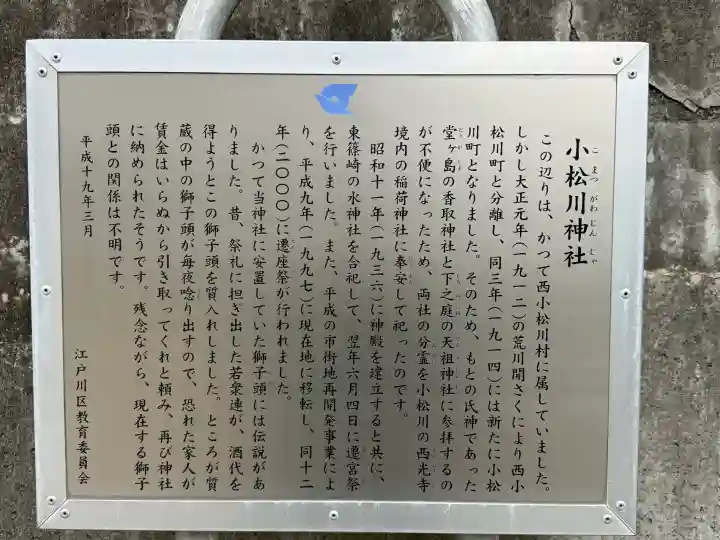 小松川神社
こまつがわじんじゃ
この辺りは、かつて西小松川村に属していました。
しかし大正元年(一九一二)の荒川開さくにより西小
松川町と分離し、同三年(一九一四)には新たに小松
川町となりました。そのため、もとの氏神であった
堂ヶ島の香取神社と下之庭の天祖神社に参拝するの
が不便になったため、両社の分霊を小松川の西光寺
境内の稲荷神社に奉安して祀ったのです。
昭和十一年(一九三六)に神殿を建立すると共に、
東篠崎の水神社を合祀して、翌年六月四日に遷宮祭
を行いました。また、平成の市街地再開発事業によ
り、平成九年(一九九七)に現在地に移転し、同十二
年(二〇〇〇)に遷座祭が行われました。
かつて当神社に安置していた獅子頭には伝説があ
りました。昔、祭礼に担ぎ出した若衆連が、酒代を
得ようとこの獅子頭を質入れしました。ところが質
蔵の中の獅子頭が毎夜唸り出すので、恐れた家人が
賃金はいらぬから引き取ってくれと頼み、再び神社
に納められたそうです。残念ながら、現在する獅子
頭との関係は不明です。
平成十九年三月
江戸川区教育委員会